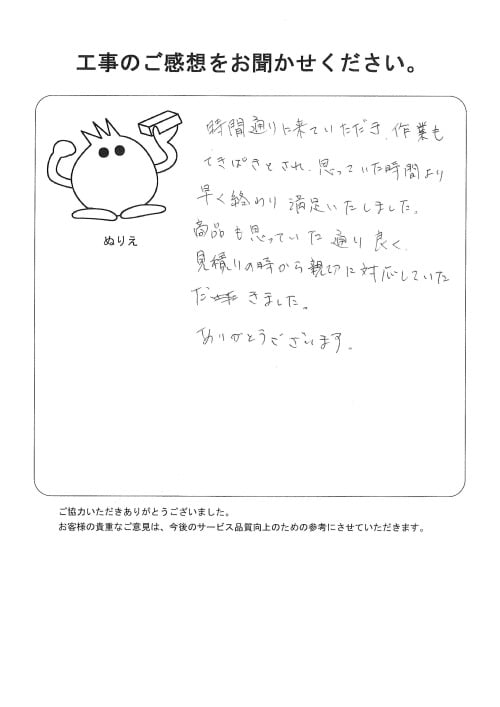 工事のご感想をお聞かせください。
ぬりえ
時間通りに来ていただき、作業も
てきぱきとされ、思っていた時間より
早く終わり満足いたしました。
商品も思っていた通り良く、
見積りの時から親切に対応していた
だきました。
ありがとうございます。
ご協力いただきありがとうございました。
お客様の貴重なご意見は、今後のサービス品質向上のための参考にさせていただきます。